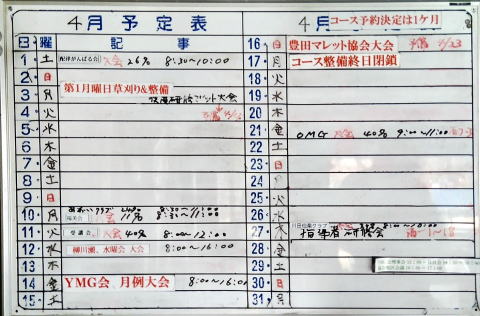 4月予定表
日 曜 記事
1 土 大会 26% 8:30~10:00
2 日 第1月曜日草刈り&整備
3 月
4 火
5 水
6 木
7 金
8 土
9 日
10 月 大会 11% 8:30~11:00
11 火 大会 40% 8:00~12:00
12 水 柳川瀬、水曜会 大会 8:00~16:00
13 木
14 金 YMG会 月例大会 8:00~16:00
15 土
4月
コース予約決定は1ケ月
16 日 豊田マレット協会大会
17 月 コース整備終日閉鎖
18 火
19 水
20 木
21 金 OMG 大会 40% 9:00~11:00
22 土
23 日
24 月
25 火
26 水
27 木 指導者研修会
28 金
29 土
30 日
31 月